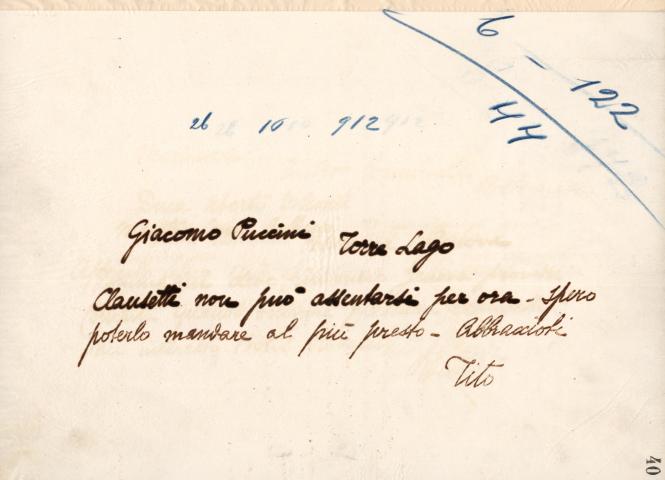 6 - 122
44
26 10 912
Giacomo Puccini Torre Lago
Clausetti non può assentarsi per ora - spero
poterlo mandare al più presto - Abbraccioti
Tito
40